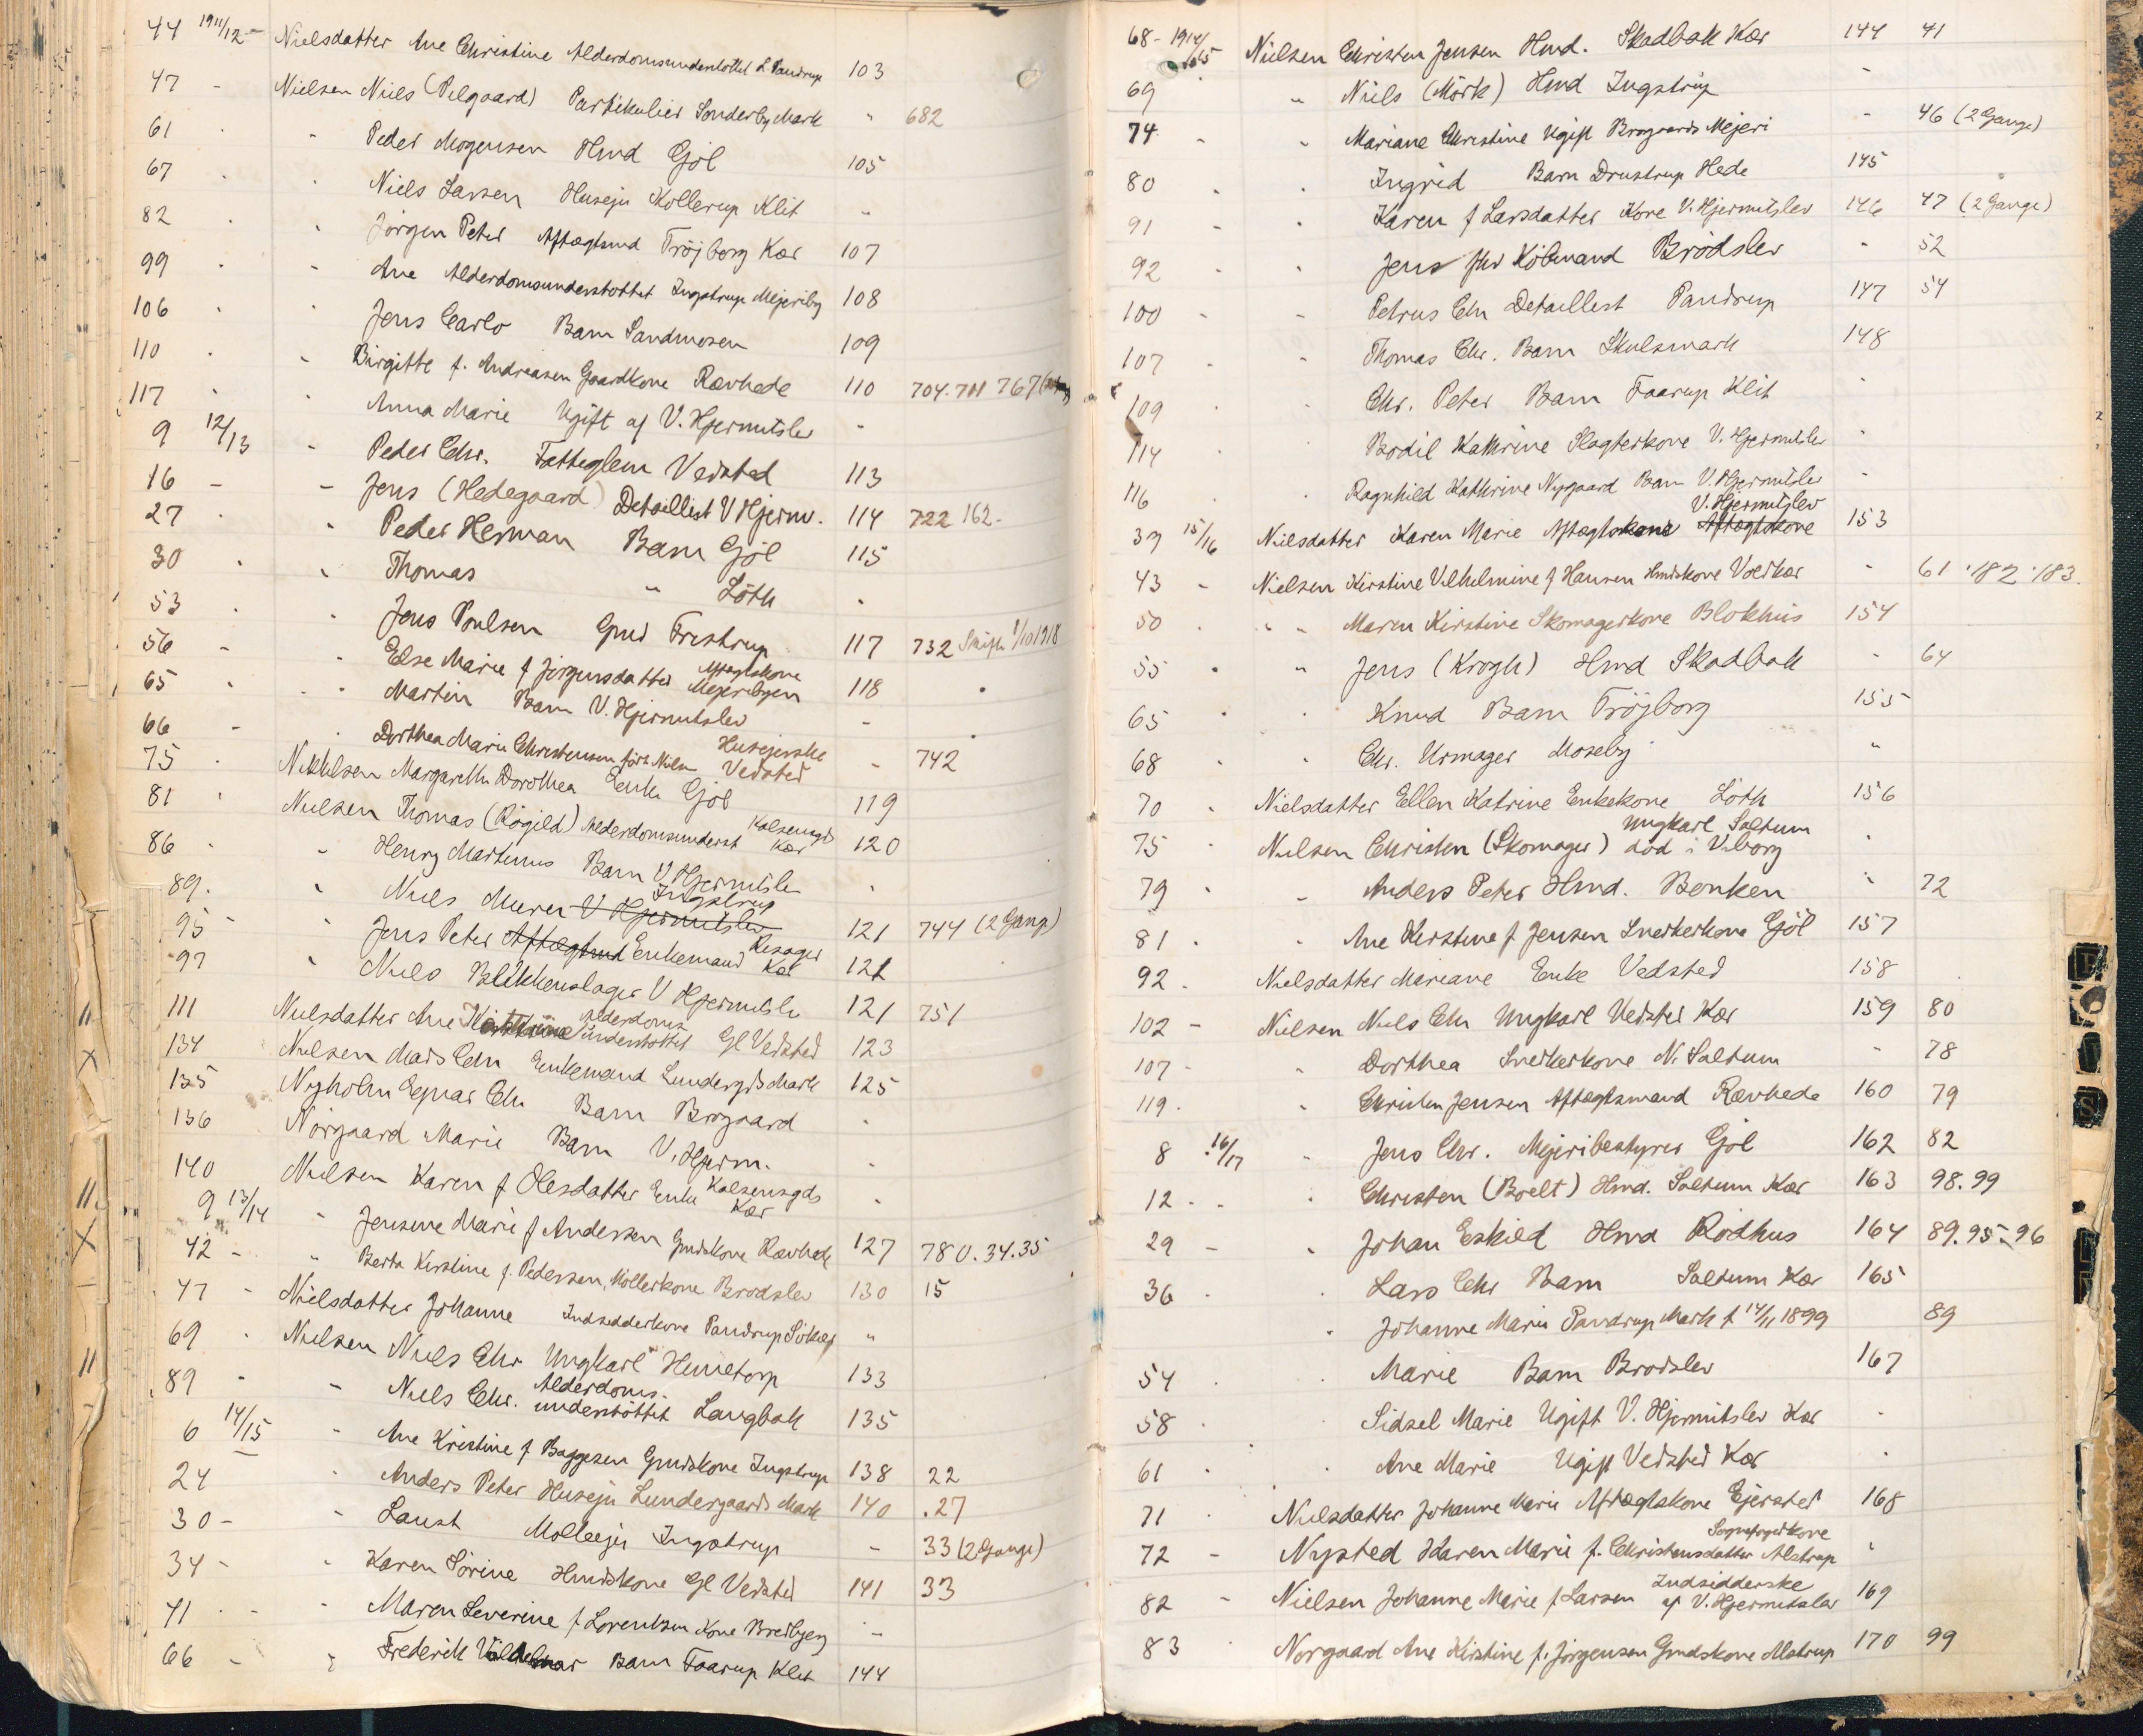 44 1911/12 - Nielsdatter Ane Christine Alderdomsunderstöttet L. Pandrup 103
47 - Nielsen Niels (Pilgaard) Partikulier Sönderby Mark " 682
61 . " Peder Mogensen Hmd Gjöl 105
67 . . Niels Larsen Husejer Kollerup Klit -
82 . . Jörgen Peter Aftægtsmd Tröjborg Kær 107
99 . - Ane Alderdomsunderstöttet Ingstrup Mejeriby 108
106 . . Jens Carlo Barn Sandmosen 109
110 . - Birgitte f. Andreasen Gaardkone Rævhede 110 704. 711 767
117 . . Anna Marie Ugift af V. Hjermitslev -
9 12/13 - Peder Chr. Fatteglem Vedsted 113
16 - - Jens (Hedegaard) Detaillist V Hjerm. 114 722 162-
27 . " Peder Herman Barn Gjöl 115
30 . . Thomas " Löth .
53 . . Jens Poulsen Gmd Fristrup 117 732 Skifte 1/10 1918
56 - - Else Marie f Jörgensdatter Aftægtskone Mejeribyen 118 .
65 . - Martin Barn V. Hjermitslev -
66 - . Dorthea Marie Christensen Husejerske Vedsted - 742
75 . Nikkelsen Margarethe Dorothea Enke Gjöl 119
81 . Nielsen Thomas (Rögild) Alderdomsunderst Kalsensgds Kær 120
86 . - Henry Martinus Barn V Hjermitslev .
89. . Niels Murer V Hjermitslev Ingstrup 121 744 (2 Gange)
95 - " Jens Peter Aftægtsmd Enkemand Kær 121
97 . Niels Blikkenslager V Hjermitslev 121 751
111 Nielsdatter Ane Kathrine Alderdomsunderstöttet Gl Vedsted 123
134 Nielsen Mads Chr Enkemand Lundergds Mark 125
135 Nyholm Ejnar Chr Barn Brogaard .
136 Nörgaard Marie Barn V. Hjerm. .
140 Nielsen Karen f Olesdatter Enke Kalsensgds Kær .
9 13/14 " Jensine Marie f Andersen Gmdskone Rævhede 127 780. 34. 35
42 - " Berta Kirstine f. Pedersen, Möllerkone Brödslev 130 15
47 - Nielsdatter Johanne Indsidderkone Pandrup Söker "
69 . Nielsen Niels Chr Ungkarl Hunetorp 133
89 - - Niels Chr. Alderdomsunderstöttet Langbak 135
6 14/15 - Ane Kristine f Baggesen Gmdskone Ingstrup 138 22
24 . Anders Peter Husejer Lundergaards Mark 140 .27
30 - - Laust Mölleejer Ingstrup - 33 (2 Gange)
34 - . Karen Sörine Hmdskone Gl Vedsted 141 33
41 - - Maren Severine f Lorentsen Kone Bredbjerg -
66 - " Frederik Valdemar Barn Faarup Klit 144
68 - 1914/15 Nielsen Christen Jensen Hmd. Skadbak Kær 144 41
69 " Niels (Mörk) Hmd Ingstrup -
74 - - Mariane Christine Ugift Brogaards Mejeri - 46 (2 Gange)
80 . . Ingrid Barn Drustrup Hede 145
91 - - Karen f Larsdatter Kone V. Hjermitslev 146 47 (2 Gange)
92 - . Jens fhv Köbmand Brödslev - 52
100 - - Petrus Chr Detaillist Pandrup 147 54
107 . " Thomas Chr. Barn Skulsmark 148
109 . . Chr. Peter Barn Faarup Klit .
114 . Bodil Kathrine Slagterkone V. Hjermitslev -
116 . . Ragnhild Kathrine Nygaard Barn V. Hjermitslev -
39 15/16 Nielsdatter Karen Marie Aftægtskone Aftægtskone V. Hjermitslev 153
43 - Nielsen Kirstine Vilhelmine f Hansen Hmdskone Voerkær - 61 . 182 . 183.
50 . . - Maren Kirstine Skomagerkone Blokhus 154
55 . " Jens (Krogh) Hmd Skadbak - 64
65 . . Knud Barn Tröjborg 155
68 . . Chr. Urmager Moseby "
70 . Nielsdatter Ellen Katrine Enkekone Löth 156
75 . Nielsen Christen (Skomager) Ungkarl Saltum död i Viborg .
79 . - Anders Peter Hmd. Bonken " 72
81 . . Ane Kirstine f Jensen Snedkerkone Gjöl 157
92 . Nielsdatter Mariane Enke Vedsted 158
102 - Nielsen Niels Chr Ungkarl Vedsted Kær 159 80
107 - " Dorthea Snedkerkone N. Saltum - 78
119. " Christen Jensen Aftægtsmand Rævhede 160 79
8 16/17 " Jens Chr. Mejeribestyrer Gjöl 162 82
12 . . . Christen (Boelt) Hmd. Saltum Kær 163 98. 99
29 - . Johan Eskild Hmd Rödhus 164 89. 95-96
36 . . Lars Chr Barn Saltum Kær 165
. Johanne Marie Pandrup Mark f 14/11 1899 89
54 . . Marie Barn Brödslev 167
58 . . Sidsel Marie Ugift V. Hjermitslev Kær -
61 . . Ane Marie Ugift Vedsted Kær .
71 . Nielsdatter Johanne Marie Aftægtskone Ejersted 168
72 - Nysted Karen Marie f. Christensdatter Sognefogedkone Alstrup "
82 - Nielsen Johanne Marie f Larsen Indsidderske af V. Hjermitslev 169
83 . Nörgaard Ane Kirstine f. Jörgensen Gmdskone Alstrup 170 99